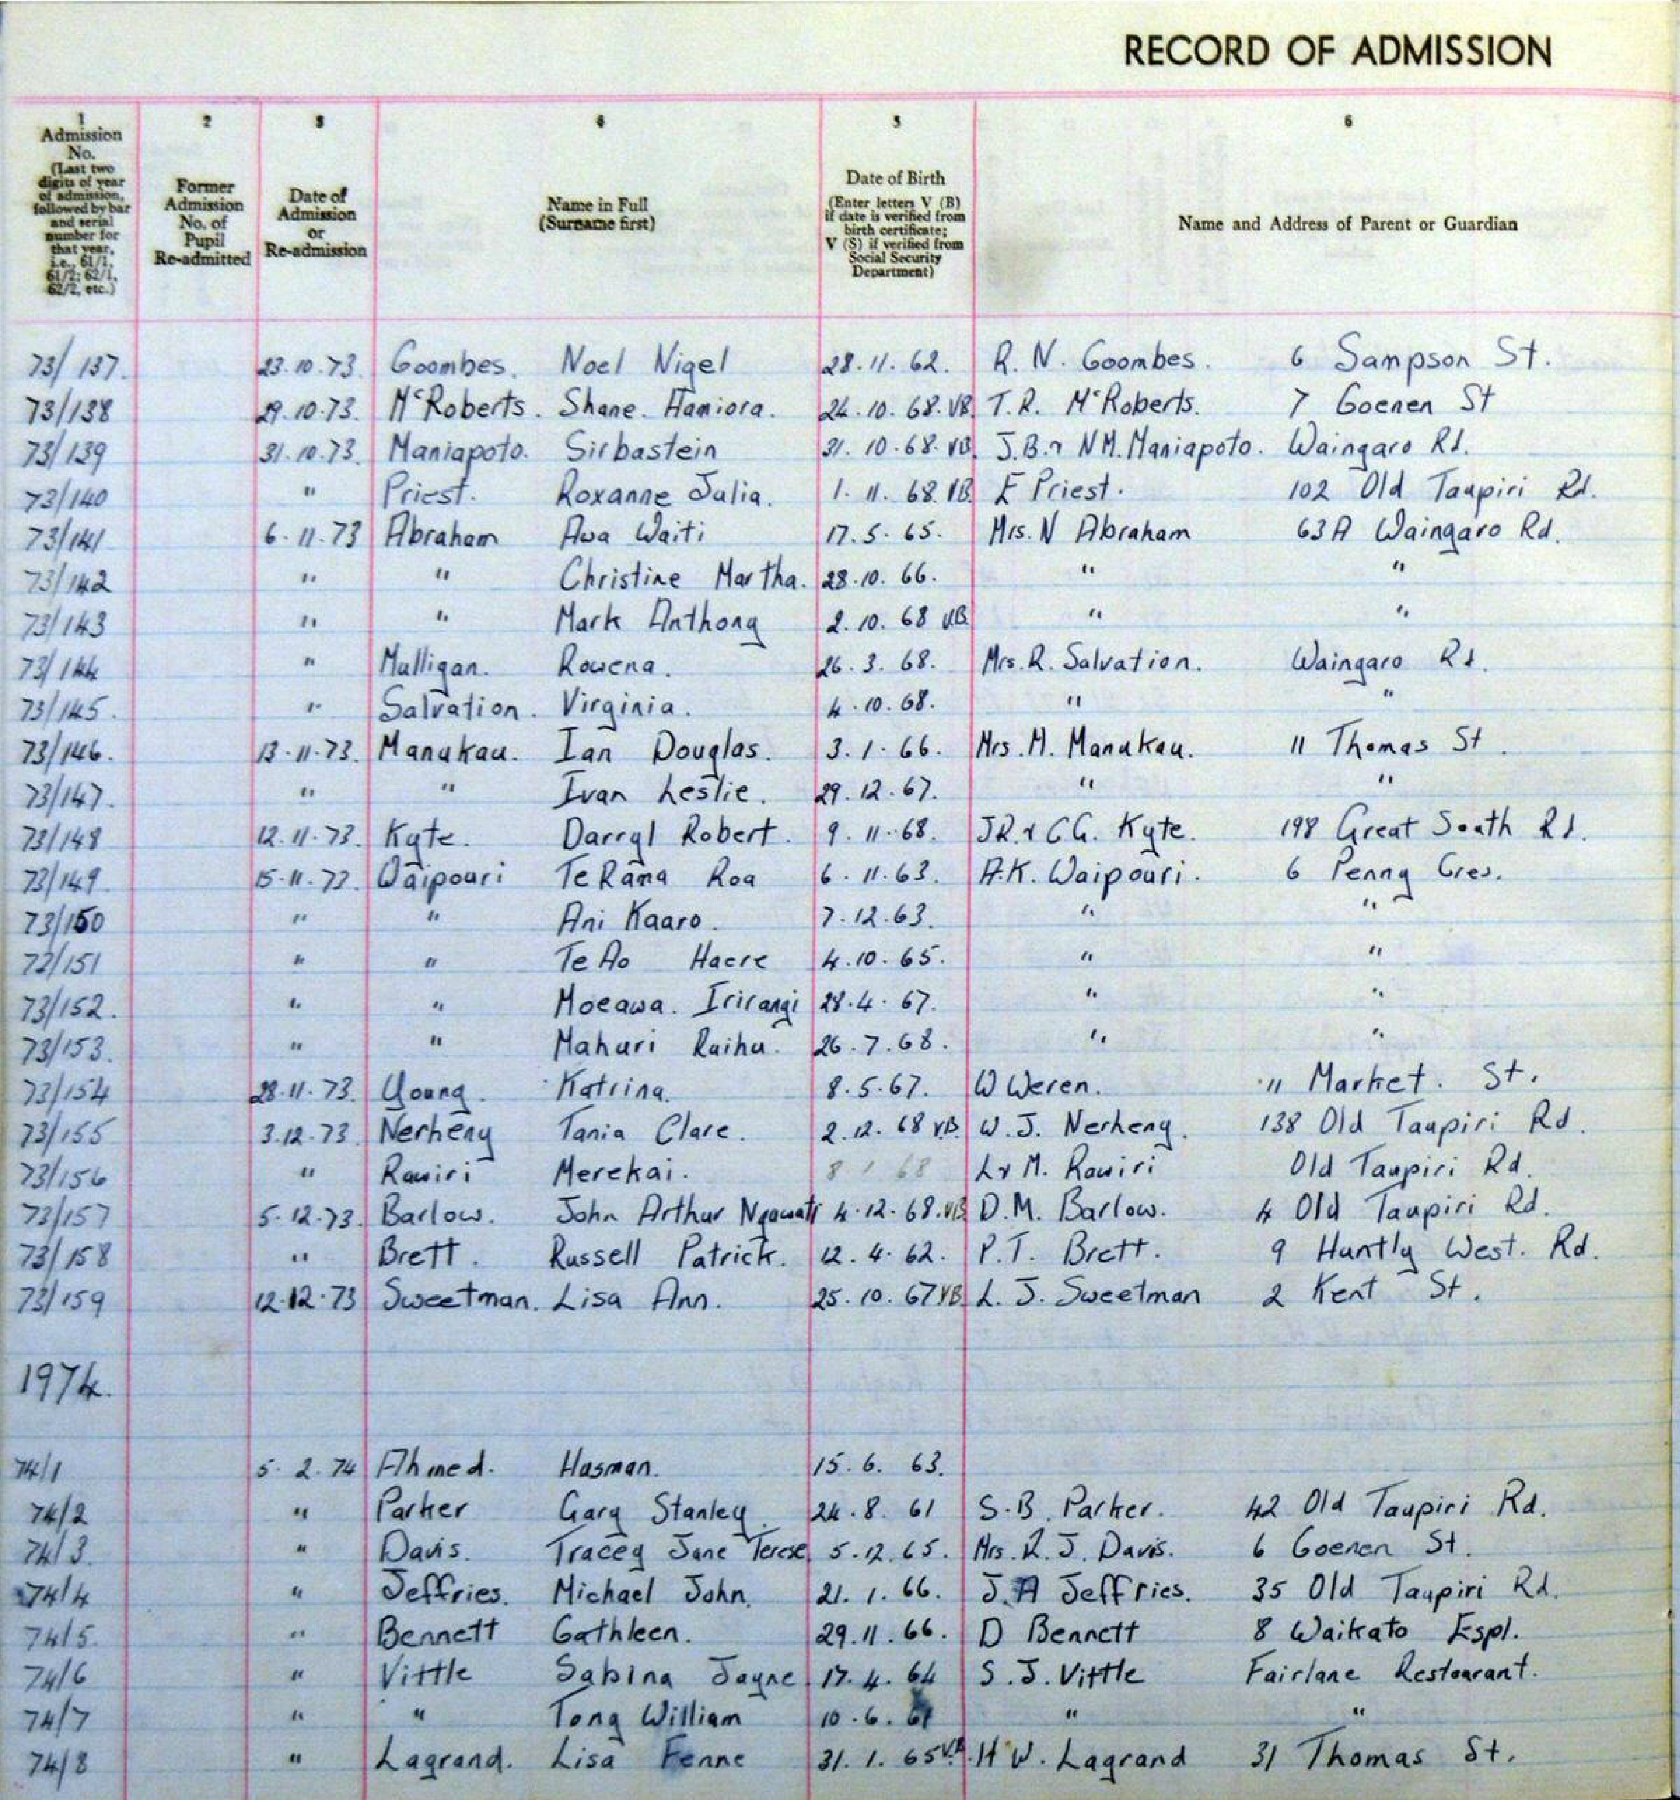 RECORD OF ADMISSION
1 2 3 4 5 6
Admission No. (Last two digits of year of admission, followed by bar and serial number for that year, i.e., 61/1, 61/2; 62/1, 62/2, etc.)
Former Admission No. of Pupil Re-admitted
Date of Admission or Re-admission
Name in Full (Surname first)
Date of Birth (Enter letters V (B) if date is verified from birth certificate; V (S) if verified from Social Security Department)
Name and Address of Parent or Guardian
73/137. 23.10.73. Coombes. Noel Nigel 28.11.62. R. N. Coombes. 6 Sampson St.
73/138 29.10.73. McRoberts. Shane Hamiora. 24.10.68. VB T.R. McRoberts. 7 Goenen St
73/139 31.10.73. Maniapoto. Sirbastein 31.10.68. VB J.B. & N.M. Maniapoto. Waingaro Rd.
73/140 " Priest. Roxanne Julia. 1.11.68. VB E Priest. 102 Old Taupiri Rd.
73/141 6.11.73 Abraham Awa Waiti 17.5.65. Mrs. N Abraham 63A Waingaro Rd.
73/142 " " Christine Martha. 28.10.66. " "
73/143 " " Mark Anthony 2.10.68 VB " "
73/144 " Mulligan. Rowena. 26.3.68. Mrs. R. Salvation. Waingaro Rd.
73/145. " Salvation. Virginia. 4.10.68. " "
73/146. 13.11.73. Manukau. Ian Douglas. 3.1.66. Mrs. M. Manukau. 11 Thomas St.
73/147. " " Ivan Leslie. 29.12.67. " "
73/148 12.11.73. Kyte. Darryl Robert. 9.11.68. J.R. & C.G. Kyte. 198 Great South Rd.
73/149 15.11.73. Waipouri Te Rama Roa 6.11.63. A.K. Waipouri. 6 Penny Cres.
73/150 " " Ani Kaaro. 7.12.63. " "
72/151 " " Te Ao Haere 4.10.65. " "
73/152. " " Moeawa. Irirangi 28.4.67. " "
73/153. " " Mahuri Raihu. 26.7.68. " "
73/154 28.11.73. Young. Katrina. 8.5.67. W Weren. 11 Market. St.
73/155 3.12.73. Nerheny Tania Clare. 2.12.68 VB. W.J. Nerheny. 138 Old Taupiri Rd.
73/156 " Rawiri Merekai. 8 1 68 L & M. Rawiri Old Taupiri Rd.
73/157 5.12.73. Barlow. John Arthur 4.12.68. VB D.M. Barlow. 4 Old Taupiri Rd.
73/158 " Brett. Russell Patrick. 12.4.62. P.T. Brett. 9 Huntly West. Rd.
73/159 12.12.73 Sweetman. Lisa Ann. 25.10.67 VB L. J. Sweetman 2 Kent St.
1974.
74/1 5.2.74 Ahmed. Hasman. 15.6.63.
74/2 " Parker Gary Stanley. 24.8.61 S.B. Parker. 42 Old Taupiri Rd.
74/3. " Davis. Tracey Jane Terese 5.12.65. Mrs. R. J. Davis. 6 Goenen St.
74/4 " Jeffries. Michael John. 21.1.66. J.A Jeffries. 35 Old Taupiri Rd.
74/5. " Bennett Cathleen. 29.11.66. D Bennett 8 Waikato Espl.
74/6 " Vittle Sabina Jayne 17.4.64 S.J. Vittle Fairlane Restaurant.
74/7 " " Tony William 10.6.61 " "
74/8 " Lagrand. Lisa Fenne 31.1.65 V.B. H W. Lagrand 31 Thomas St.